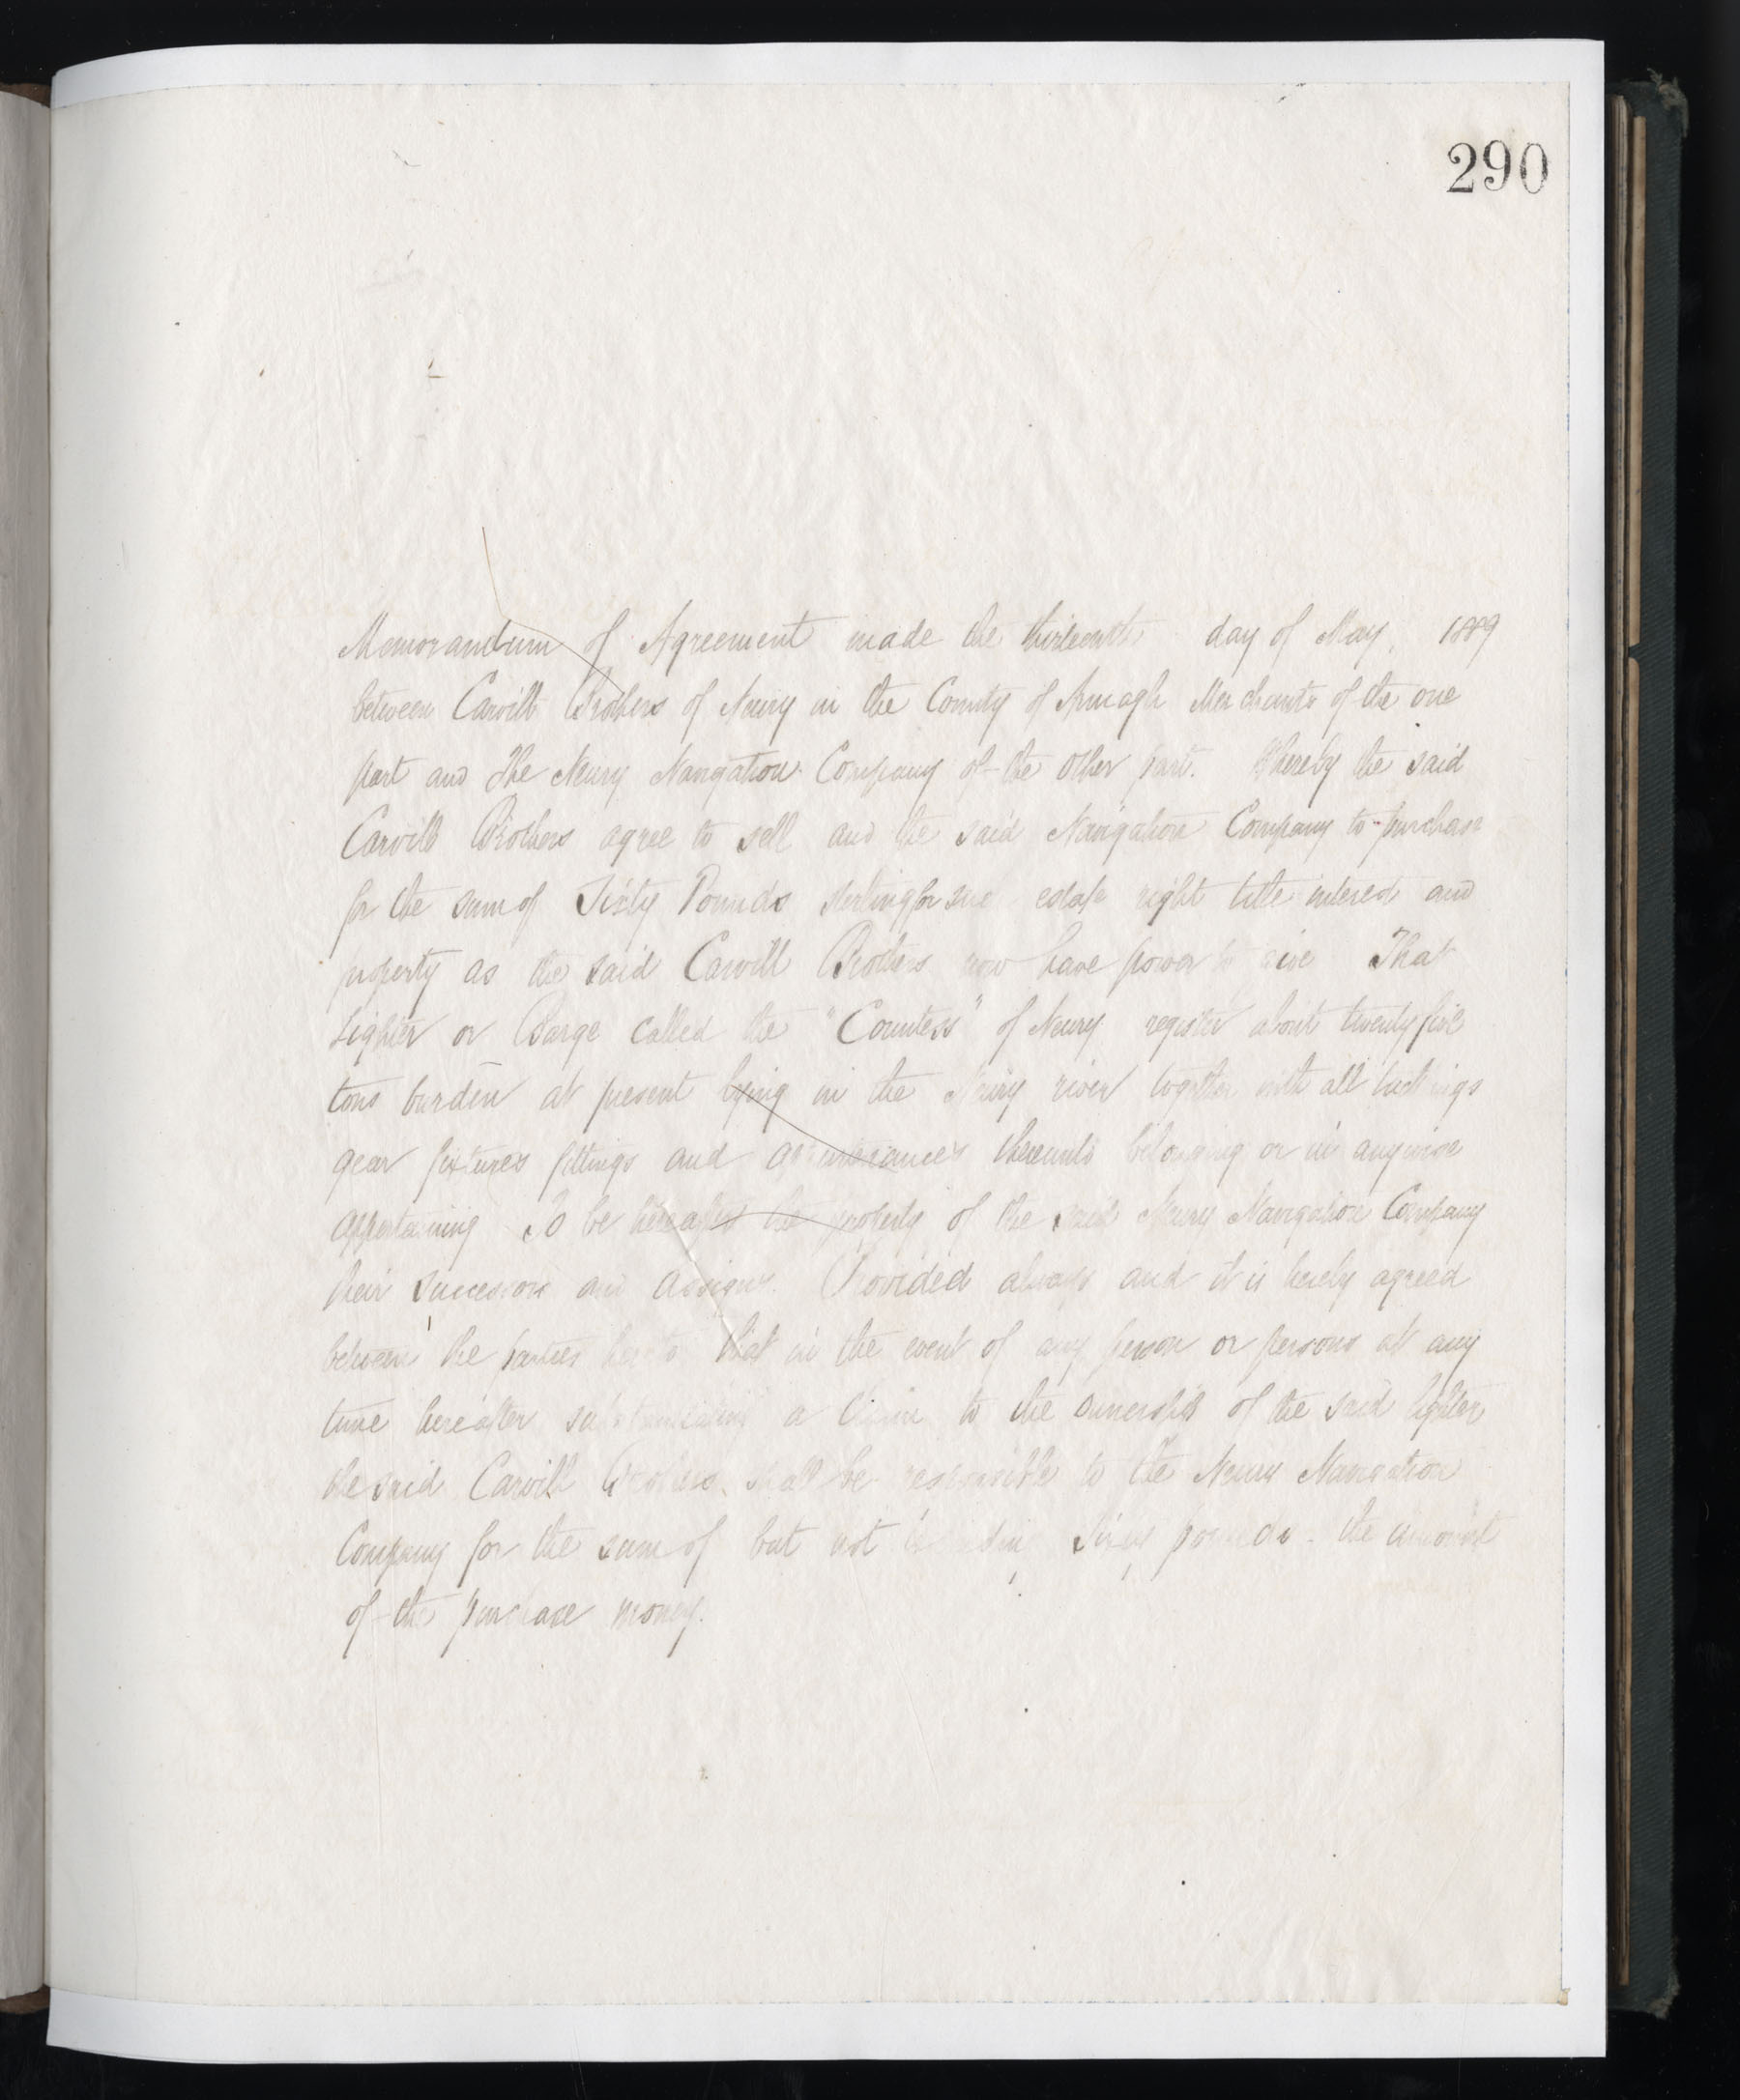 290
Memorandum of Agreement made the thirteenth day of May, 1889
between Carvill Brothers of Newry in the County of Armagh Merchants of the one
part and The Newry Navigation Company of the other part. Whereby the said
Carvill Brothers agree to sell and the said Navigation Company to purchase
for the sum of Sixty Pounds sterling for such estate right title interest and
property as the said Carvill Brothers now have power to give That
Lighter or Barge called the "Countess" of Newry register about twenty five
tons burden at present lying in the Newry river together with all
gear fixtures fittings and appurtenances thereunto belonging or in anywise
appertaining To be hereafter the property of the said Newry Navigation Company
their successors and assigns. Provided always and it is hereby agreed
between the parties hereto that in the event of any person or persons at any
time hereafter substantiating a claim to the ownership of the said lighter
the said Carvill Brothers shall be responsible to the Newry Navigation
Company for the sum of but not exceeding Sixty pounds. the amount
of the purchase money.